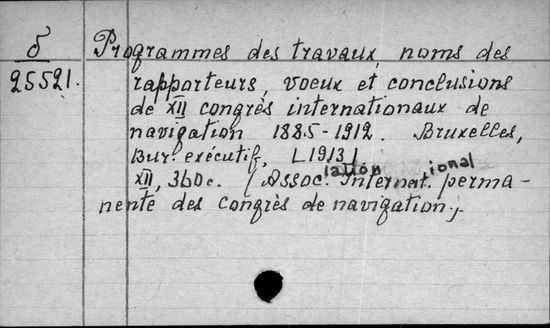 δ Programmes des travaux, noms des
25521. rapporteurs, voeux et conclusions
de XII congrès internationaux de
navigation 1885-1912. Bruxelles,
Bur. exécutif, [1913]
XII, 360c. (Association International perma-
nente des Congrès de navigation.)